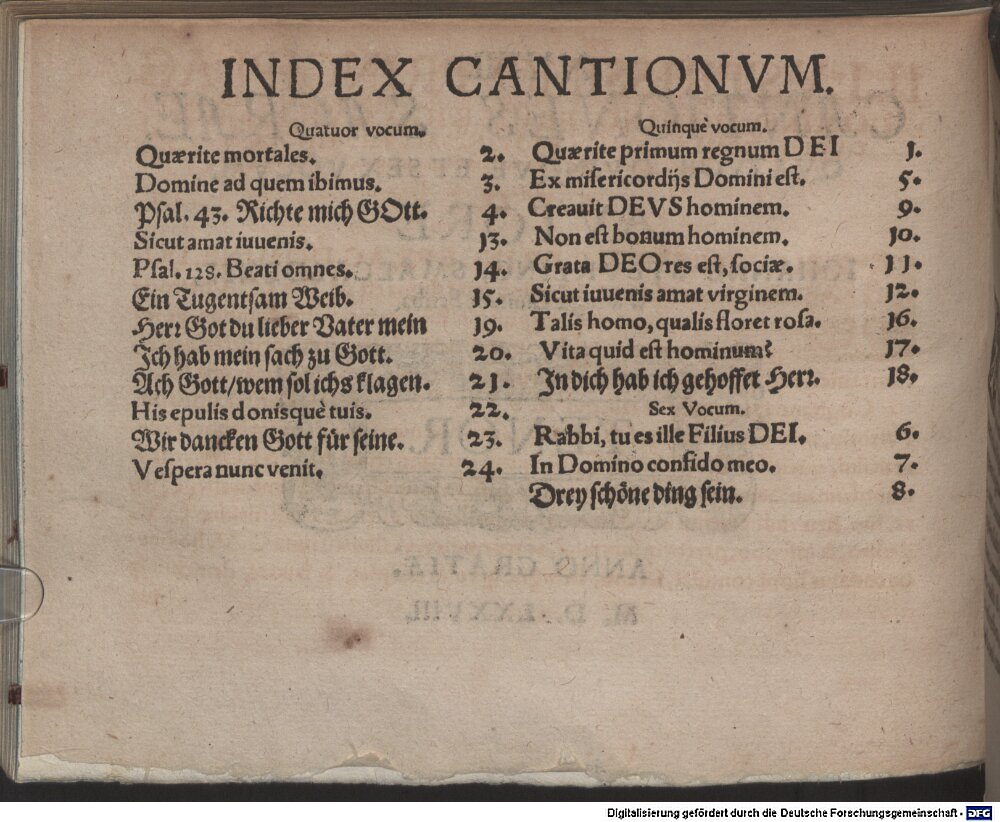 INDEX CANTIONVM.
Quatuor vocum.
Quærite mortales. 2.
Domine ad quem ibimus. 3.
Psal. 43. Richte mich GOtt. 4.
Sicut amat iuuenis. 13.
Psal. 128. Beati omnes. 14.
Ein Tugentsam Weib. 15.
Herr Got du lieber Vater mein 19.
Ich hab mein sach zu Gott. 20.
Ach Gott/wem sol ichs klagen. 21.
His epulis donisquè tuis. 22.
Wir dancken Gott für seine. 23.
Vespera nunc venit. 24.
Quinquè vocum.
Quærite primum regnum DEI 1.
Ex misericordijs Domini est. 5.
Creauit DEVS hominem. 9.
Non est bonum hominem. 10.
Grata DEO res est, sociæ. 11.
Sicut iuuenis amat virginem. 12.
Talis homo, qualis floret rosa. 16.
Vita quid est hominum? 17.
In dich hab ich gehoffet Herr. 18.
Sex Vocum.
Rabbi, tu es ille Filius DEI. 6.
In Domino confido meo. 7.
Drey schöne ding sein. 8.
ANNO GRATIÆ.
M. D. LXXVIII.
Digitalisierung gefördert durch die Deutsche Forschungsgemeinschaft - DFG